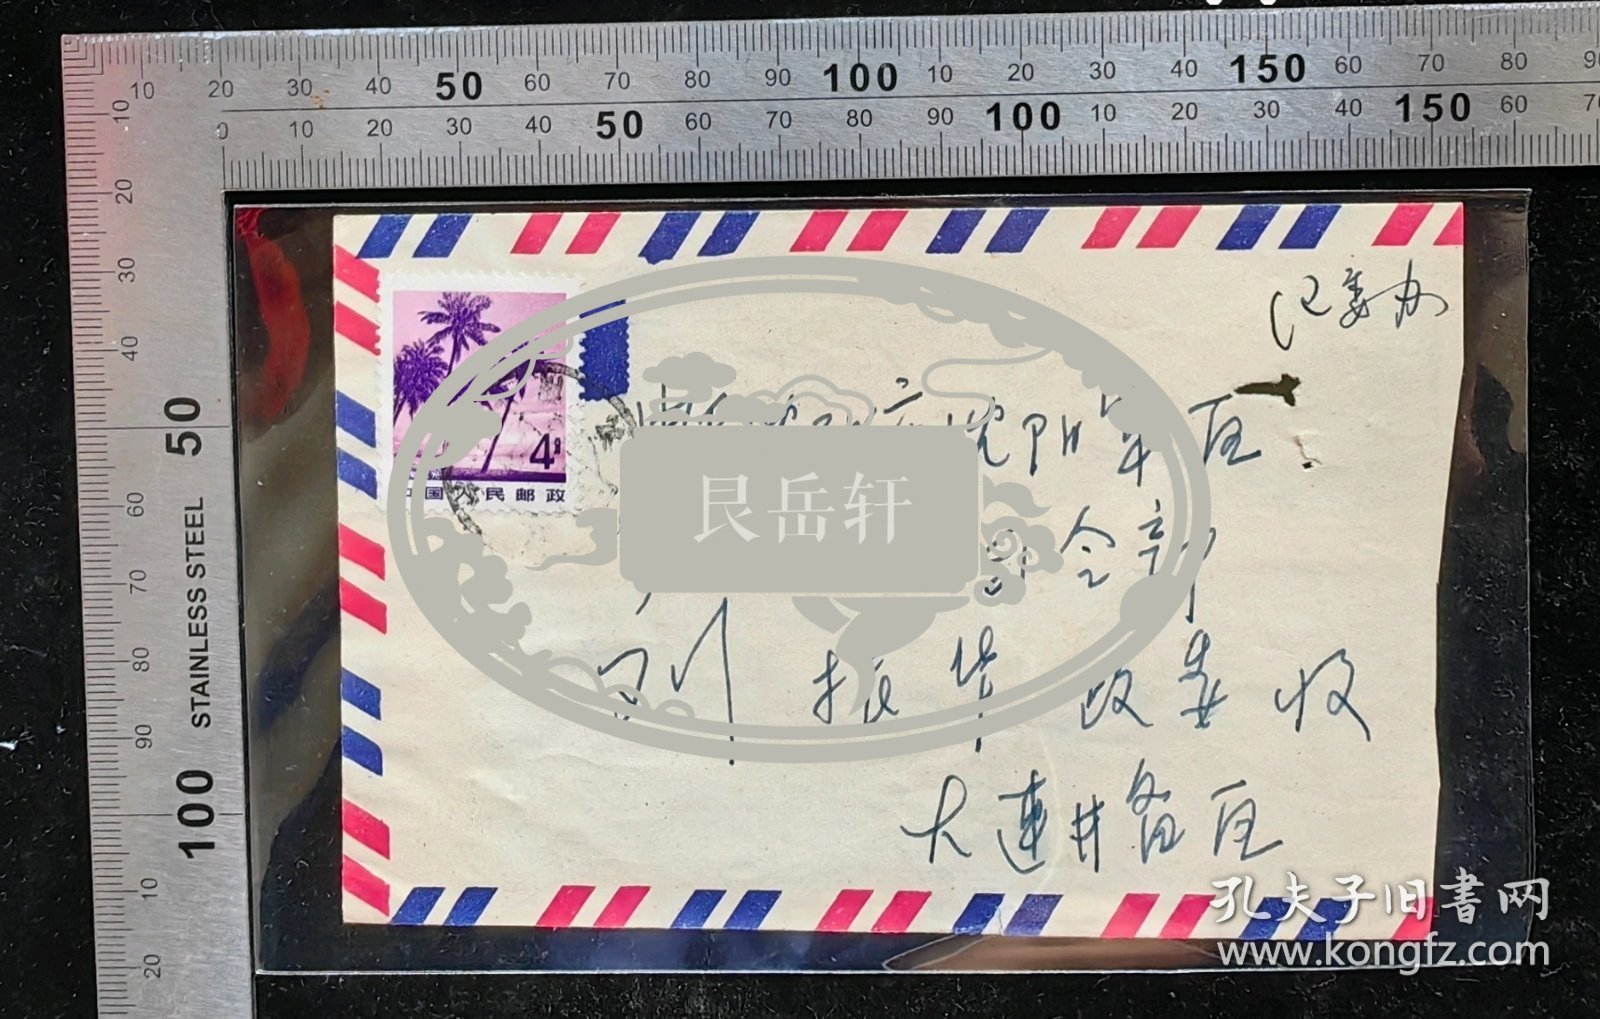 10 20 30 40 50 60 70 80 90 100 10 20 30 40 150 60 70 80
0 10 20 30 40 50 60 70 80 90 100 10 20 30 40 150 60
10 20 30 40 50 60 70 80 90 100 10 20
STAINLESS STEEL
4
中国人民邮政
沈阳军区
令部
刘振华政委收
大连井备区
艮岳轩
孔夫子旧書网
www.kongfz.com